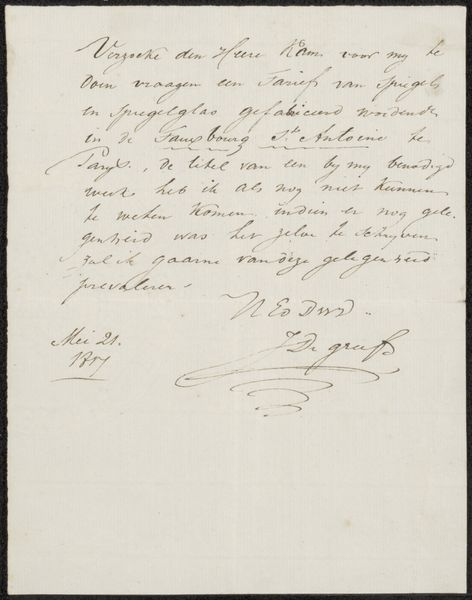 Verzoeke den Heere Kam voor my te
doen vraagen een Tarief van Spiegels
en Spiegelglas gefabriceerd wordende
in de Fauxbourg St. Antoine te
Parys, de titel van een by my benodigd
werk heb ik als nog niet kunnen
te weten komen, indien er nog gele
gentheid was het zelve te schryven
zal ik gaarne van deze gelegenheid
prevaleren.
UEDDWD
J De Greef
Mei 21.